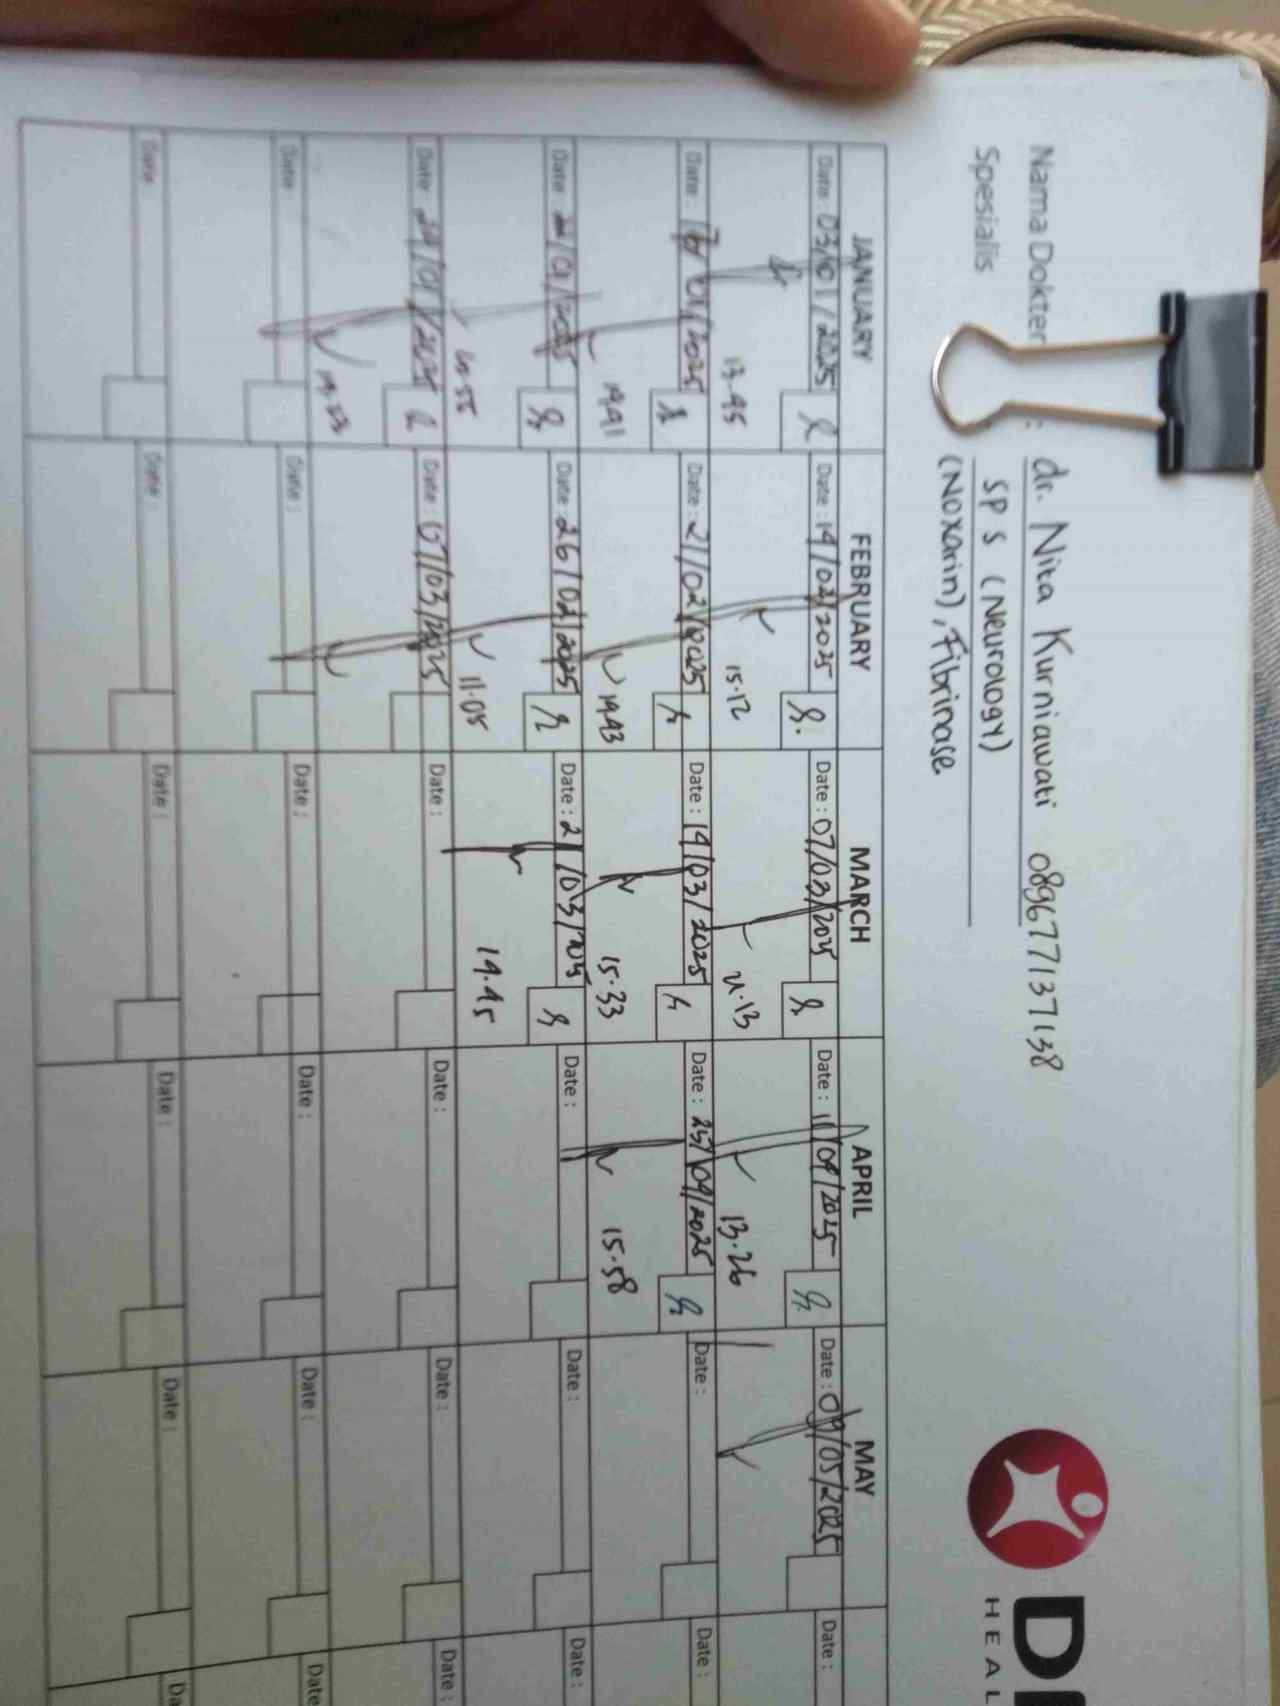 Nama Dokter : dr. Nita Kurniawati 089677137138
Spesialis SP S (Neurology)
(Noxarin), Fibrinase
HEAL
JANUARY FEBRUARY MARCH APRIL MAY
Date : 03/01/2025 Date : 19/02/2025 Date : 07/03/2025 Date : 11/04/2025 Date : 09/05/2025 Date :
13.45 15.12 13.26
Date : /01/2025 Date : 21/02/2025 Date : 19/03/2025 Date : 25/04/2025 Date : Date :
15.33 15.58
Date : 22/01/2025 Date : 26/02/2025 Date : 21/03/2025 Date : Date : Date :
11.05 14.45
Date : /01/2025 Date : 07/03/2025 Date : Date : Date : Date :
Date : Date : Date : Date : Date : Date
Date : Date : Date : Date : Date :